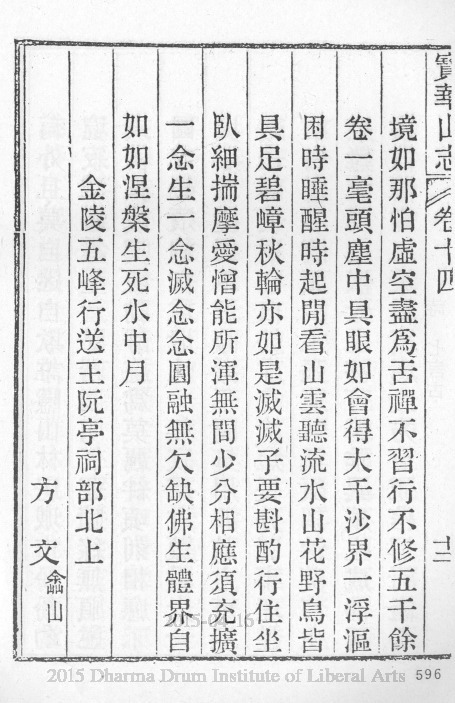 寶華山志 卷十四 十二
境如那怕虛空盡爲舌禪不習行不修五千餘
卷一毫頭塵中具眼如會得大千沙界一浮漚
困時睡醒時起閒看山雲聽流水山花野鳥皆
具足碧嶂秋輪亦如是滅滅子要斟酌行住坐
臥細揣摩愛憎能所渾無間少分相應須充擴
一念生一念滅念念圓融無欠缺佛生體界自
如如涅槃生死水中月
金陵五峰行送王阮亭祠部北上
方文 嵞山
2015-04-16
2015 Dharma Drum Institute of Liberal Arts 596